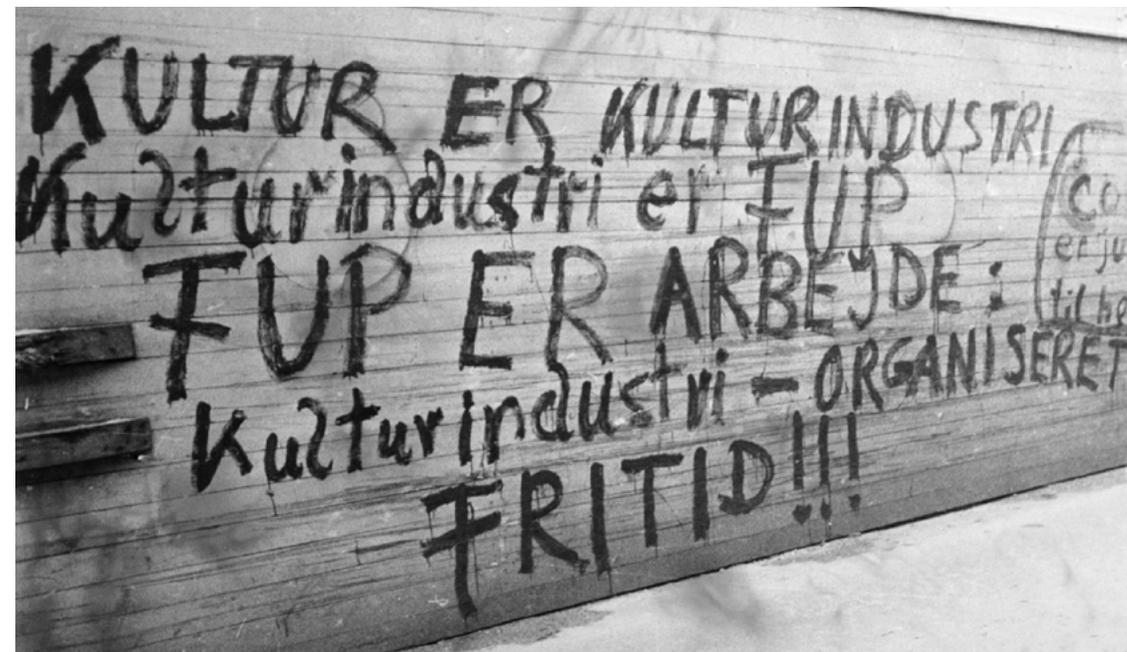 KULTUR ER KULTURINDUSTRI
Kulturindustri er FUP
FUP ER ARBEJDE :
Kulturindustri - ORGANISERET
FRITID!!!